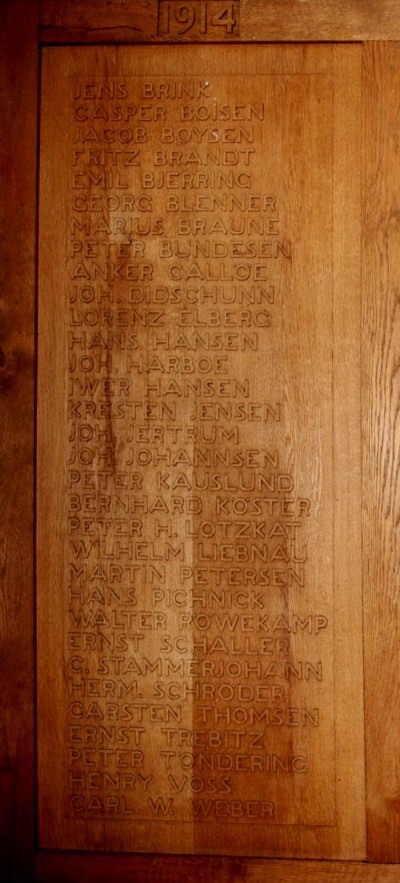 1914
JENS BRINK
CASPER BOISEN
JACOB BOYSEN
FRITZ BRANDT
EMIL BJERRING
GEORG BLENNER
MARIUS BRAUNE
PETER BUNDESEN
ANKER CALLÖE
JOH. DIDSCHUNN
LORENZ ELBERG
HANS HANSEN
JOH. HARBOE
IWER HANSEN
KRESTEN JENSEN
JOH. JERTRUM
JOH. JOHANNSEN
PETER KAUSLUND
BERNHARD KÖSTER
PETER H. LOTZKAT
WILHELM LIEBNAU
MARTIN PETERSEN
HANS PICHNICK
WALTER RÖWEKAMP
ERNST SCHALLER
C. STAMMERJOHANN
HERM. SCHRÖDER
CARSTEN THOMSEN
ERNST TREBITZ
PETER TÖNDERING
HENRY VOSS
CARL W. WEBER